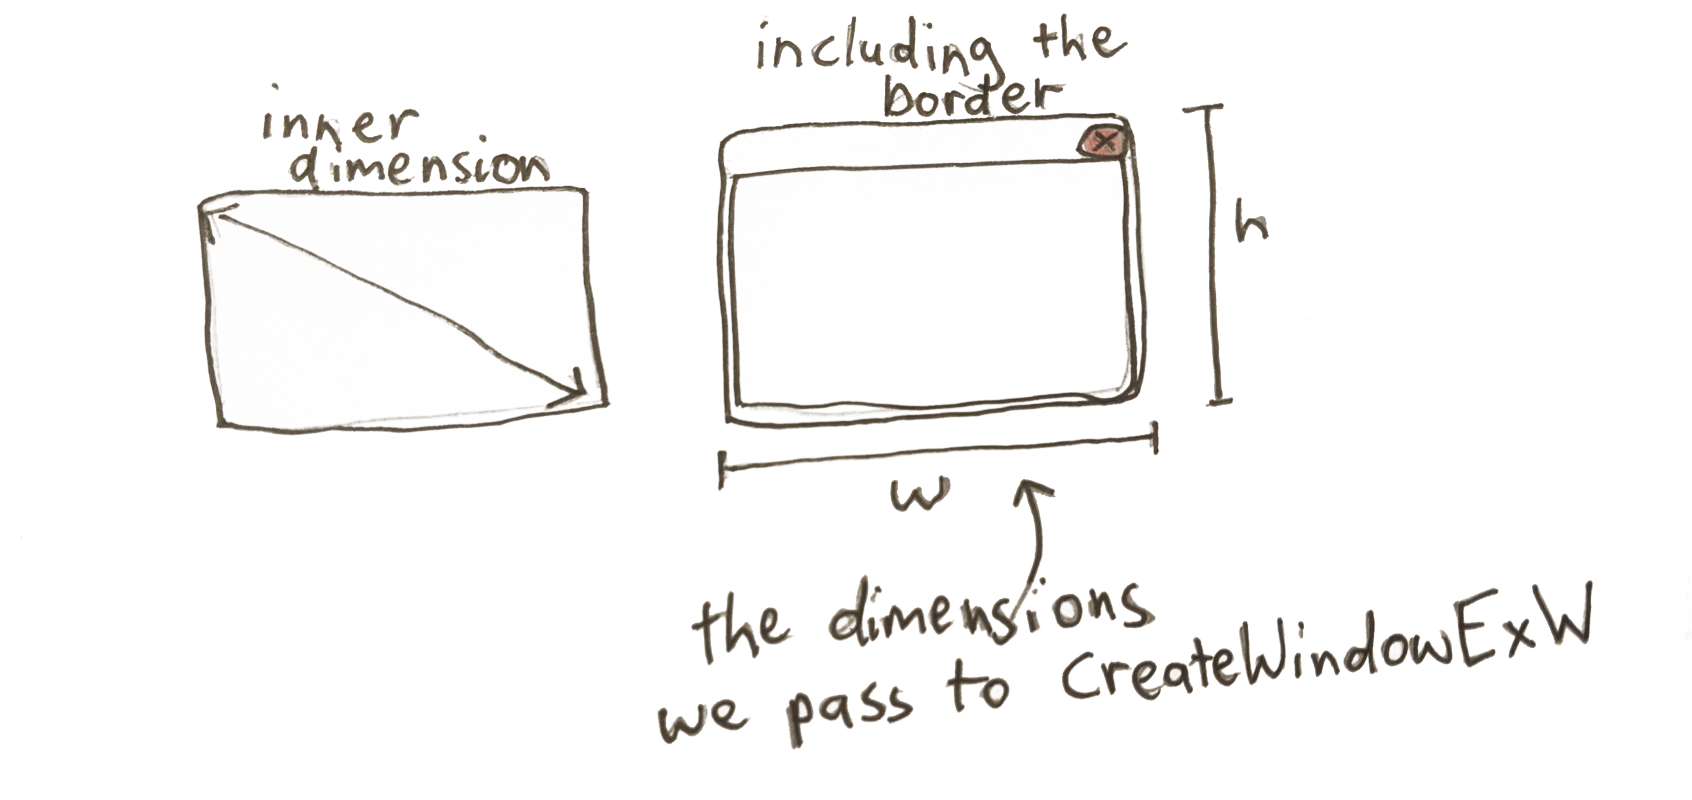 inner
dimension
including the
border
h
w
the dimensions
we pass to CreateWindowExW